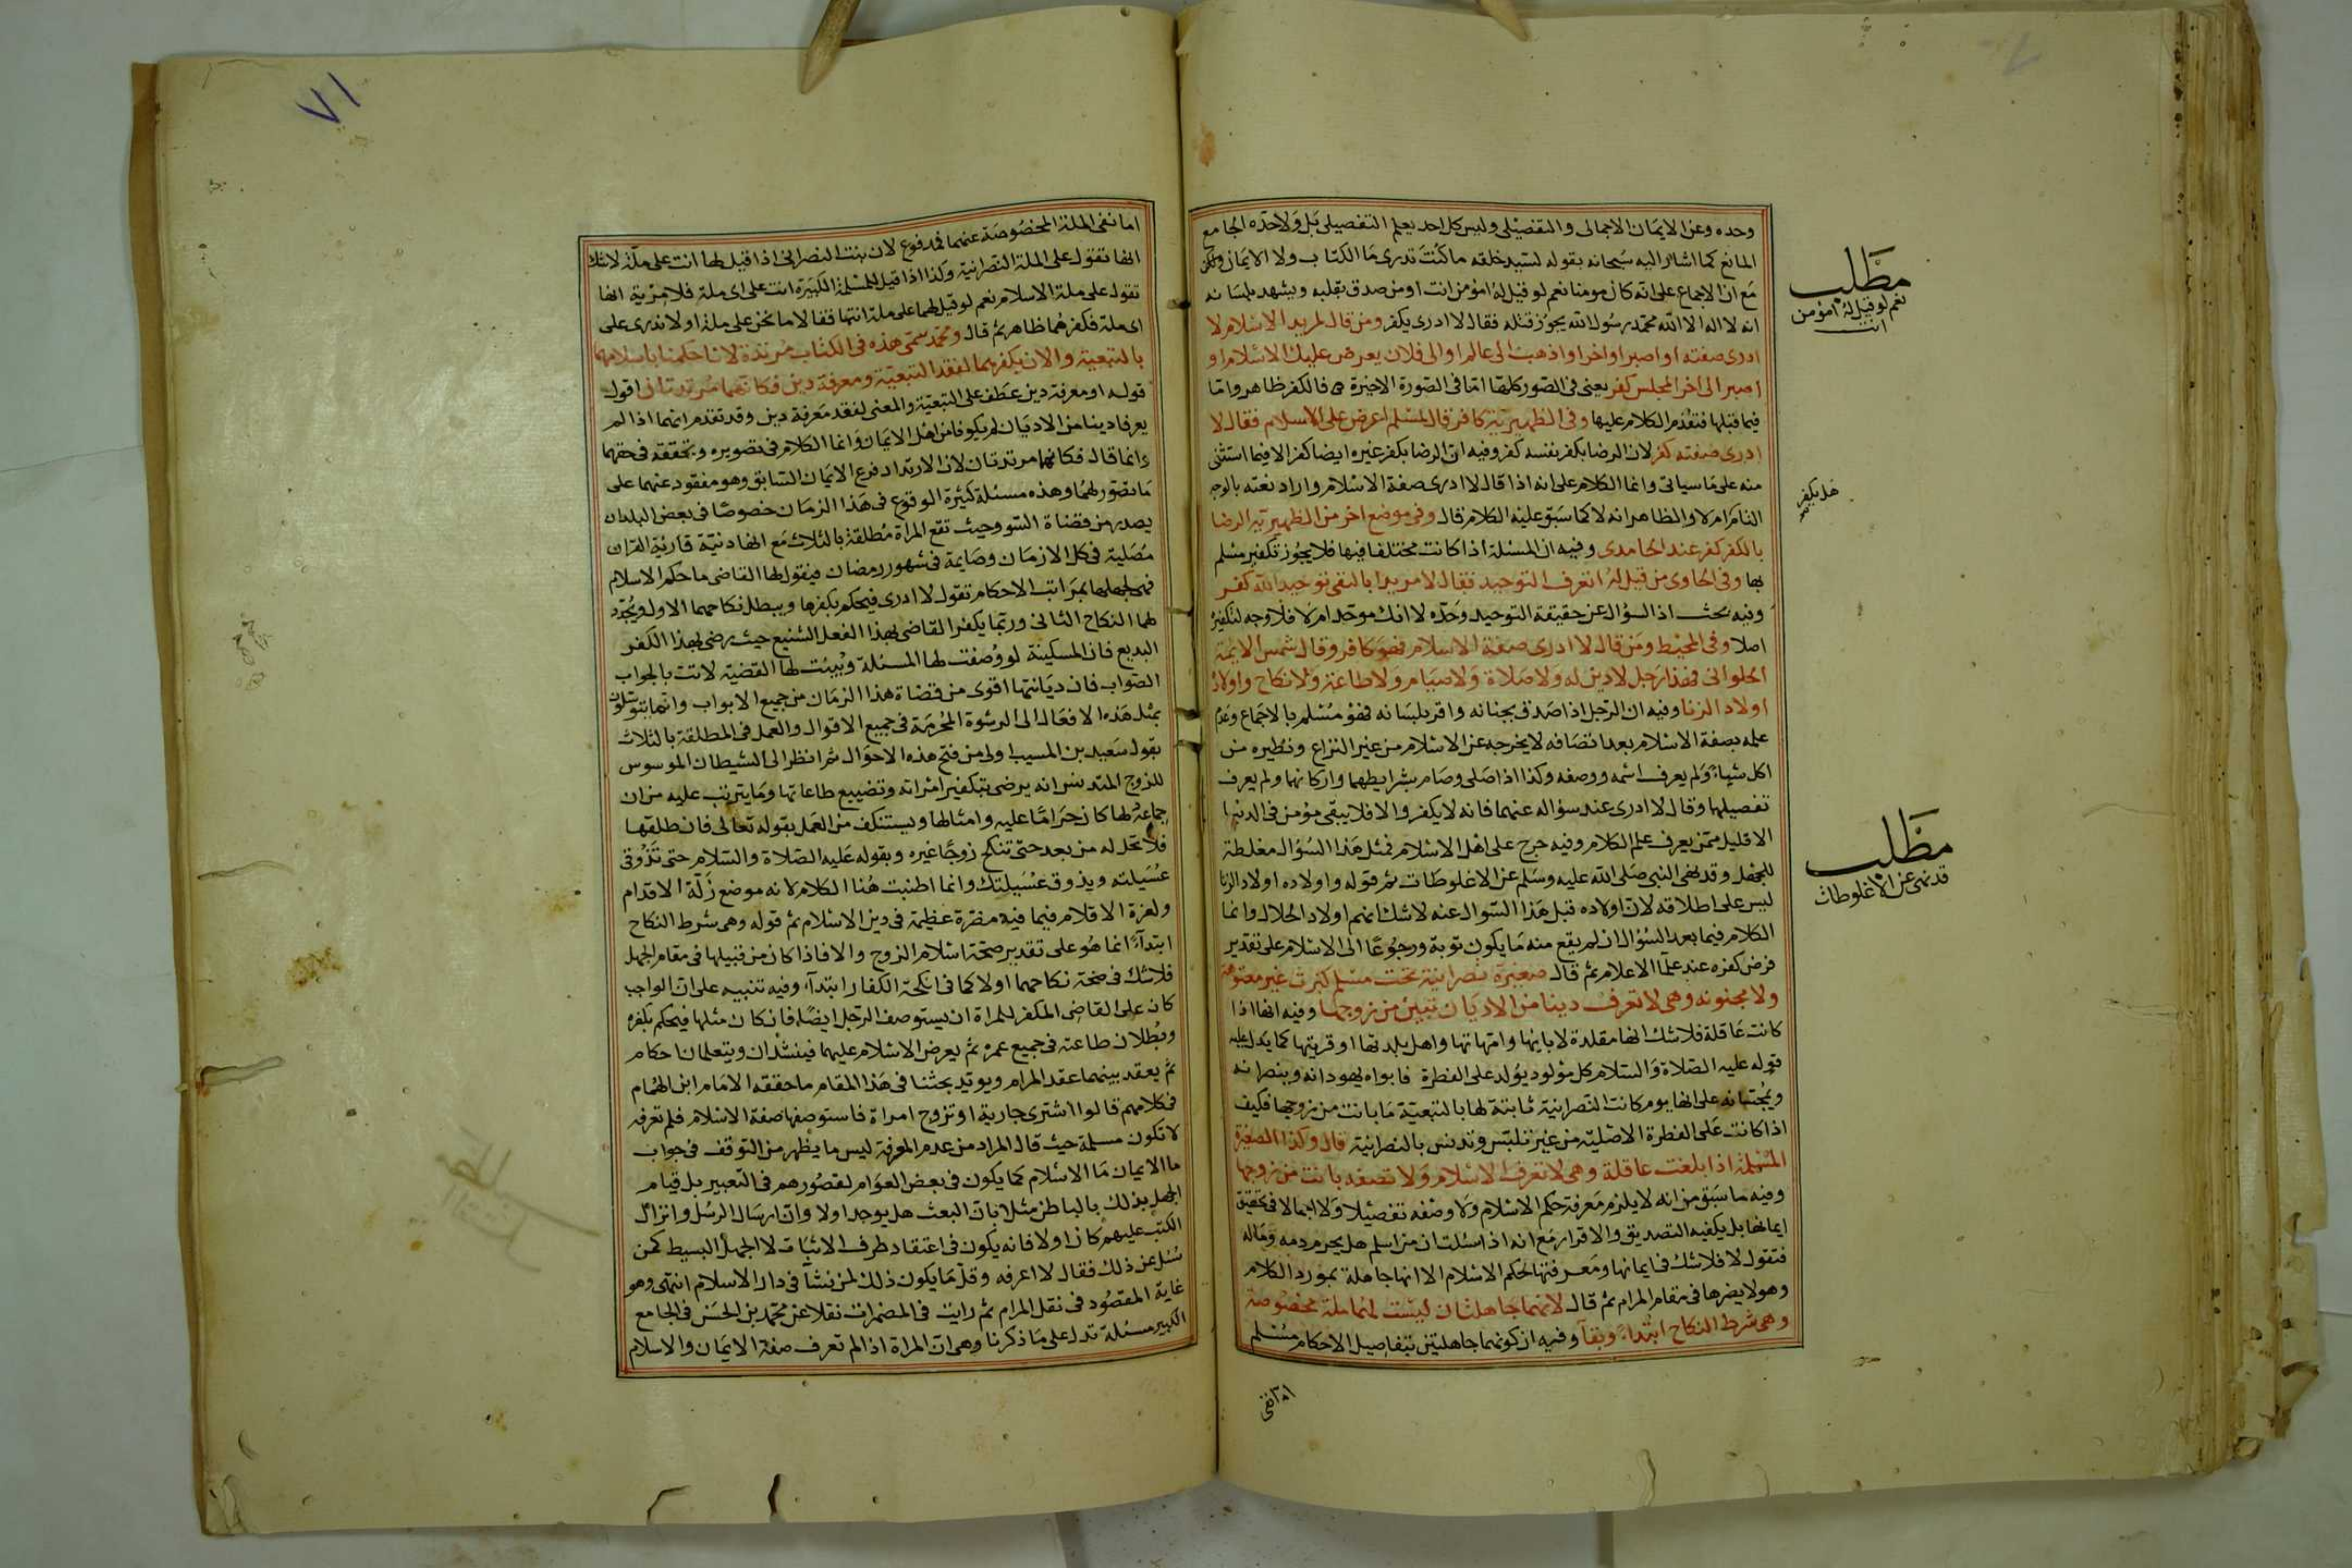 وحده وعن الايمان الاجمالى والتفصيلى وليس كل احد يعلم التفصيلى بل ولا حده الجامع
المانع كما اشار اليه سبحانه بقوله لسيد خلقه ما كنت تدرى ما الكتاب ولا الايمان ولكن
مع ان الاجماع على انه كان مومنا نعم لو قيل له امؤمن انت اومن صدق بقلبه ويشهد بلسانه
انه لا اله الا الله محمد رسول الله يجوز قتله فقال لا ادرى يكفر ومن قال لمريد الاسلام لا
ادرى صفته او اصبر او اخر او اذهب الى عالم او الى فلان يعرض عليك الاسلام او
اصبر الى اخر المجلس كفر يعنى فى الصور كلها اما فى الصورة الاخيرة فالكفر ظاهر واما
فيما قبلها فتقدم الكلام عليها وفى الظهيرية كافر قال لمسلم اعرض على الاسلام فقال لا
ادرى صفته كفر لان الرضا بكفر نفسه كفر وفيه ان الرضا بكفر غيره ايضا كفر الا فيما استثنى
منه على ما سياتى وانما الكلام على انه اذا قال لا ادرى صفة الاسلام واراد نعته بالوجه
التام ام لا والظاهر انه لا كما سبق عليه الكلام قال وفى موضع اخر من الظهيرية الرضا
بالكفر كفر عند الحامدى وفيه ان المسئلة اذا كانت مختلفا فيها فلا يجوز تكفير مسلم
بها وفى الحاوى من قيل له اتعرف التوحيد فقال لا مريدا بالنفى توحيد الله كفر
وفيه بحث اذ السؤال عن حقيقة التوحيد وحده لا انك موحد ام لا فلا وجه لتكفيره
اصلا وفى المحيط ومن قال لا ادرى صفة الاسلام فهو كافر وقال شمس الايمة
الحلوانى فهذا رجل لا دين له ولا صلاة ولا صيام ولا طاعة ولا نكاح واولاده
اولاد الزنا وفيه ان الرجل اذا صدق بجنانه واقر بلسانه فهو مسلم بالاجماع وعدم
علمه بصفة الاسلام بعد اتصافه لا يخرجه عن الاسلام من غير النزاع ونظيره من
اكل شياء ولم يعرف اسمه ووصفه وكذا اذا صلى وصام بشرايطهما واركانهما ولم يعرف
تفصيلها وقال لا ادرى عند سؤاله عنهما فانه لا يكفر والا فلا يبقى مؤمن فى الدنيا
الا قليل ممن يعرف علم الكلام وفيه حرج على اهل الاسلام فمثل هذا السؤال مغلطة
للجهل وقد نهى النبى صلى الله عليه وسلم عن الاغلوطات ثم قوله واولاده اولاد الزنا
ليس على اطلاقه لان اولاده قبل هذا السوال عنه لا شك انهم اولاد الحلال وانما
الكلام فيما بعد السؤال ان لم يقع منه ما يكون توبة ورجوعا الى الاسلام على تقدير
فرض كفره عند علما الاعلام ثم قال صغيرة نصرانية تحت مسلم كبرت غير معتوهة
ولا مجنونه وهى لا تعرف دينا من الاديان تبين من زوجها وفيه انها اذا
كانت عاقلة فلا شك انها مقلدة لابايها وامهاتها واهل بلدتها او قريتها كما يدل عليه
قوله عليه الصلاة والسلام كل مولود يولد على الفطرة فابواه يهودانه وينصرانه
ويمجسانه على انها يوم كانت النصرانية ثابتة لها بالتبعية ما بانت من زوجها فكيف
اذا كانت على الفطرة الاصلية من غير تلبس وتدنس بالنصرانية قال وكذا الصغيرة
المسلمة اذا بلغت عاقلة وهى لا تعرف الاسلام ولا تصفه بانت من زوجها
وفيه ما سبق من انه لا يلزم معرفة حكم الاسلام ولا وصفه تفصيلا ولا اجمالا فى تحقيق
ايمانها بل يكفيه التصديق والاقرار مع انه اذا سئلت ان من اسلم هل يحرم دمه وماله
فتقول لا فلا شك فى ايمانها ومعرفتها لحكم الاسلام الا انها جاهلة بمورد الكلام
وهو لا يضرها فى مقام المرام ثم قال لانهما جاهلتان ليست لهما ملة مخصوصة
وهى شرط النكاح ابتداء وبقآ وفيه ان كونهما جاهلتين بتفاصيل الاحكام مسلم
مطلب
نعم لو قيل له امؤمن
انت
هل يكفر
مطلب
قد نهى عن الاغلوطات
اما نفى
٧١
اما نفى الملة المخصوصة عنهما فمدفوع لان بنت النصرانى اذا قيل لها انت على ملة لا شك
انها تقول على الملة النصرانية وكذا اذا قيل للمسلمة الكبيرة انت على اى ملة فلا مزية انها
تقول على ملة الاسلام نعم لو قيل لهما على ملة انتما فقالا ما نحن على ملة او لا ندرى على
اى ملة فكفرهما ظاهر ثم قال ومحمد سمى هذه فى الكتاب مرتدة لانا حكمنا باسلامهما
بالتبعية والان بكفرهما لفقد التبعية ومعرفة دين فكانهما مرتدتان اقول
قوله او معرفة دين عطف على التبعية والمعنى لفقد معرفة دين وقد تقدم انهما اذا لم
يعرفا دينا من الاديان لم يكونا من اهل الايمان وانما الكلام فى تصويره وتحققه فى حقهما
وانما قال فكانهما مرتدتان لان الارتداد فرع الايمان السابق وهو مفقود عنهما على
ما تصور لهما وهذه مسئلة كثيرة الوقوع فى هذا الزمان خصوصا فى بعض البلدان
يصدر من قضاة السو وحيث تقع المرأة مطلقة بالثلاث مع انها دنية قارئة القران
مصلية فى كل الازمان وصايمة فى شهور رمضان فيقول لها القاضى ما حكم الاسلام
فهى لجهلها بمراتب الاحكام تقول لا ادرى فيحكم بكفرها ويبطل نكاحهما الاول ويجدد
لهما النكاح الثانى وربما يكفر القاضى بهذا الفعل الشنيع حيث رضى بهذا الكفر
البديع فان المسكينة لو وصفت لها المسئلة وبينت لها القضية لاتت بالجواب
الصواب فان ديانتها اقوى من قضاة هذا الزمان من جميع الابواب وانما يتوسلون
بمثل هذه الافعال الى الرشوة المحرمة فى جميع الاقوال والعمل فى المطلقة بالثلاث
بقول سعيد بن المسيب اولى من فتح هذه الاحوال ثم انظر الى الشيطان الموسوس
للزوج المتدنس انه يرضى بتكفير امراته وتضييع طاعاتها وما يترتب عليه من ان
جماعه لها كان حراما عليه وامثالها ويستنكف من العمل بقوله تعالى فان طلقها
فلا تحل له من بعد حتى تنكح زوجا غيره وبقوله عليه الصلاة والسلام حتى تذوقى
عسيلته ويذوق عسيلتك وانما اطنبت هنا الكلام لانه موضع زلة الاقدام
ولعزة الاقلام فيما فيه مضرة عظيمة فى دين الاسلام ثم قوله وهى شرط النكاح
ابتدآء انما هو على تقدير صحة اسلام الزوج والا فاذا كان من قبيلها فى مقام الجهل
فلا شك فى صحة نكاحهما اولا كما فى انكحة الكفار ابتدآء وفيه تنبيه على ان الواجب
كان على القاضى المكفر للمراة ان يستوصف الرجل ايضا فان كان مثلها فيحكم بكفره
وبطلان طاعته فى جميع عمره ثم يعرض الاسلام عليهما فينشدان ويتعلمان احكام
ثم يعقد بينهما عقد المرام ويويد بحثنا فى هذا المقام ما حققه الامام ابن الهمام
فى كلامهم قالوا اشترى جارية او تزوج امراة فاستوصفها صفة الاسلام فلم تعرفه
لا تكون مسلمة حيث قال المراد من عدم المعرفة ليس ما يظهر من التوقف فى جواب
ما الايمان ما الاسلام كما يكون فى بعض العوام لقصورهم فى التعبير بل قيام
الجهل بذلك بالباطن مثلا بان البعث هل يوجد اولا وان ارسال الرسل وانزال
الكتب عليهم كان اولا فانه يكون فى اعتقاد طرف الاثبات لا الجهل البسيط كمن
سئل عن ذلك فقال لا اعرفه وقل ما يكون ذلك لمن نشأ فى دار الاسلام انتهى وهو
غاية المقصود فى نقل المرام ثم رايت فى المضمرات نقلا عن محمد بن الحسن فى الجامع
الكبير مسئلة تدل على ما ذكرنا وهى ان المراة اذا لم تعرف صفة الايمان والاسلام